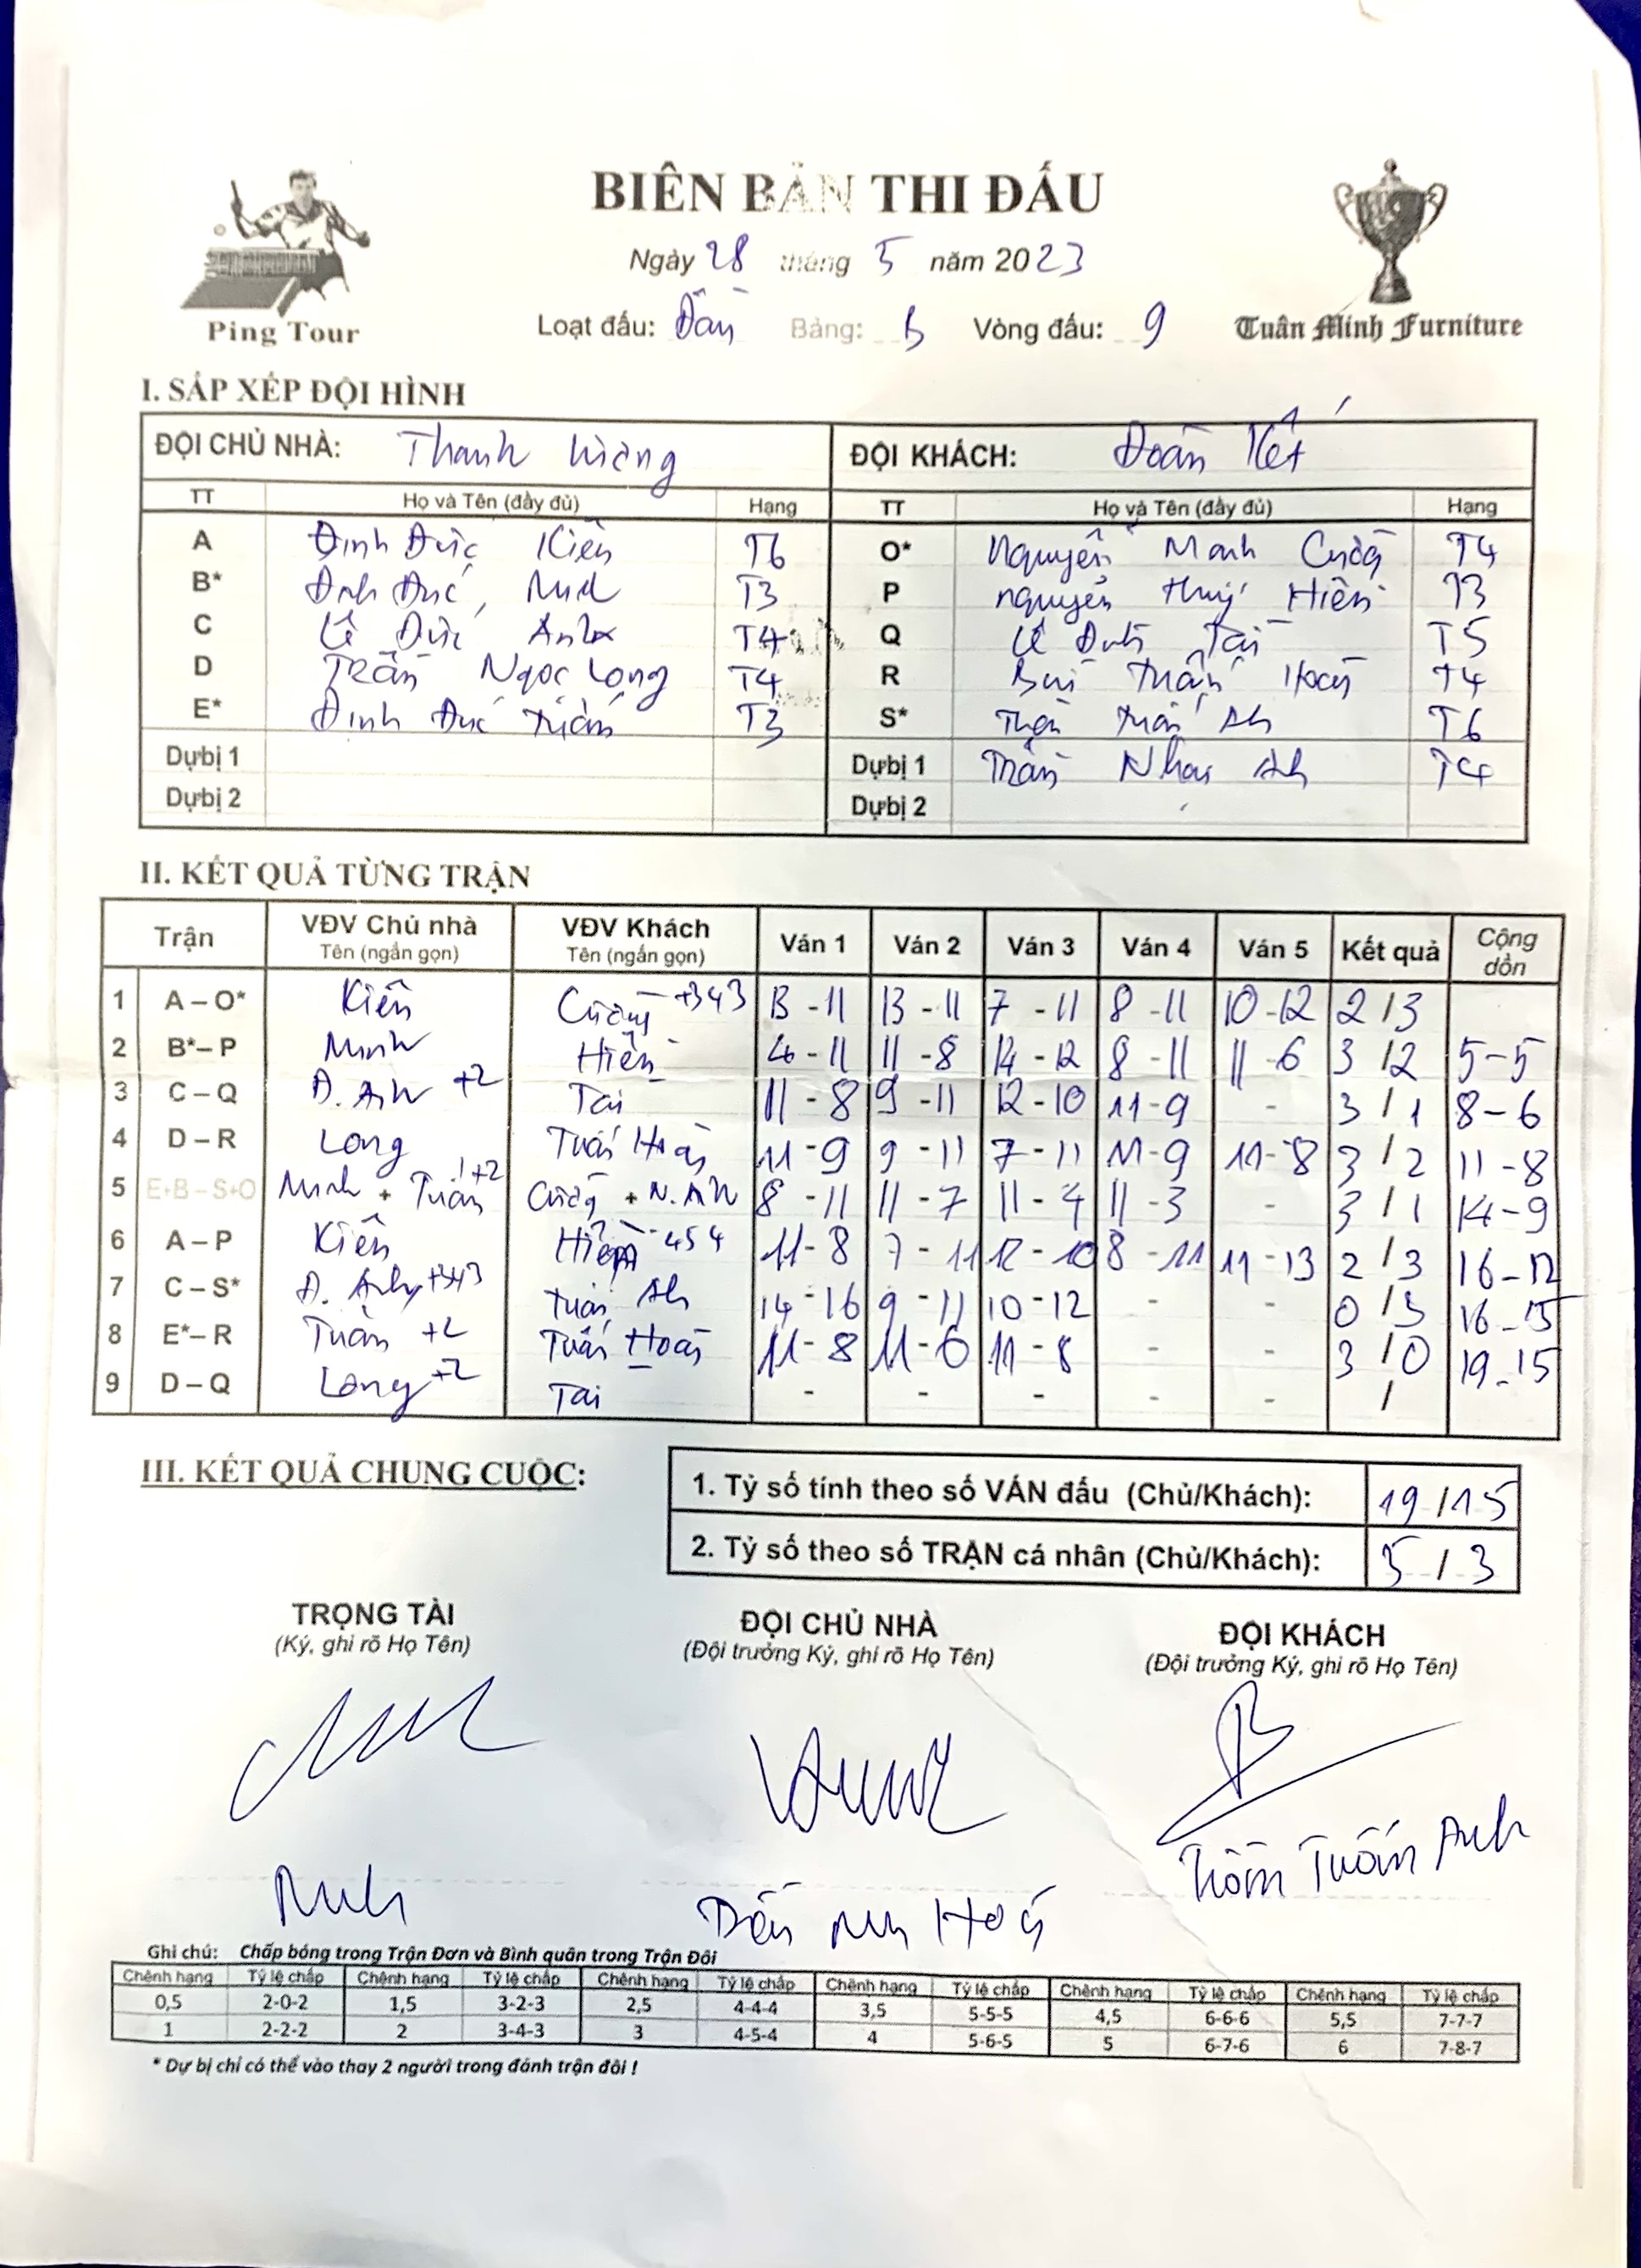 BIÊN BẢN THI ĐẤU
Ngày 28 tháng 5 năm 2023
Ping Tour
Loạt đấu: Bảng: B Vòng đấu: 9
Tuấn Minh Furniture
I. SẮP XẾP ĐỘI HÌNH
ĐỘI CHỦ NHÀ: Thanh ĐỘI KHÁCH: Đoàn Kết
TT Họ và Tên (đầy đủ) Hạng TT Họ và Tên (đầy đủ) Hạng
A Đinh Đức Kiên T6 O* Nguyễn Mạnh Cường T4
B* Đinh Đức T3 P Nguyễn Thuý Hiền T3
C Lê Đức Anh T4 Q Lê Đình Tài T5
D Trần Ngọc Long T4 R Bùi Tuấn Hoàng T4
E* Đinh Đức Tuấn T3 S* Tuấn Anh T6
Dự bị 1 Dự bị 1 Trần Anh T4
Dự bị 2 Dự bị 2
II. KẾT QUẢ TỪNG TRẬN
Trận VĐV Chủ nhà Tên (ngắn gọn) VĐV Khách Tên (ngắn gọn) Ván 1 Ván 2 Ván 3 Ván 4 Ván 5 Kết quả Cộng dồn
1 A – O* Kiên Cường +343 13 - 11 13 - 11 7 - 11 8 - 11 10 - 12 2 / 3
2 B* – P Minh Hiền 4 - 11 11 - 8 14 - 12 8 - 11 11 - 6 3 / 2 5 - 5
3 C – Q Đ. Anh +2 Tài 11 - 8 9 - 11 12 - 10 11 - 9 - 3 / 1 8 - 6
4 D – R Long Tuấn Hoàng 11 - 9 9 - 11 7 - 11 11 - 9 11 - 8 3 / 2 11 - 8
5 E+B – S+O Minh + Tuấn +2 Cường + N. Anh 8 - 11 11 - 7 11 - 4 11 - 3 - 3 / 1 14 - 9
6 A – P Kiên Hiền -454 11 - 8 7 - 11 12 - 10 8 - 11 11 - 13 2 / 3 16 - 12
7 C – S* Đ. Anh +343 Tuấn Anh 14 - 16 9 - 11 10 - 12 - - 0 / 3 16 - 15
8 E* – R Tuấn +2 Tuấn Hoàng 11 - 8 11 - 6 11 - 8 - - 3 / 0 19 - 15
9 D – Q Long +2 Tài - - - - - /
III. KẾT QUẢ CHUNG CUỘC:
1. Tỷ số tính theo số VÁN đấu (Chủ/Khách): 19 / 15
2. Tỷ số theo số TRẬN cá nhân (Chủ/Khách): 5 / 3
TRỌNG TÀI ĐỘI CHỦ NHÀ ĐỘI KHÁCH
(Ký, ghi rõ Họ Tên) (Đội trưởng Ký, ghi rõ Họ Tên) (Đội trưởng Ký, ghi rõ Họ Tên)
Trần Tuấn Anh
Ghi chú: Chấp bóng trong Trận Đơn và Bình quân trong Trận Đôi
Chênh hạng Tỷ lệ chấp Chênh hạng Tỷ lệ chấp Chênh hạng Tỷ lệ chấp Chênh hạng Tỷ lệ chấp Chênh hạng Tỷ lệ chấp Chênh hạng Tỷ lệ chấp
0,5 2-0-2 1,5 3-2-3 2,5 4-4-4 3,5 5-5-5 4,5 6-6-6 5,5 7-7-7
1 2-2-2 2 3-4-3 3 4-5-4 4 5-6-5 5 6-7-6 6 7-8-7
* Dự bị chỉ có thể vào thay 2 người trong đánh trận đôi !